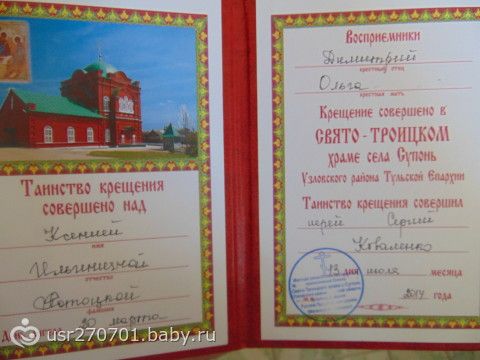 Таинство крещения
совершено над
Ксенией
имя
Ильиничной
отчество
фамилия
30 марта
usr270701.baby.ru
Восприемники
Димитрий
крестный отец
Ольга
крестная мать
Крещение совершено в
СВЯТО-ТРОИЦКОМ
храме села Супонь
Узловского района Тульской Епархии
Таинство крещения совершил
иерей Сергий
Коваленко
13 дня июля месяца
2014 года